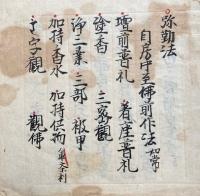 弥勒法
自房中至佛前作法 如常
壇前普礼 着座普礼
塗香 三密觀
浄三業 三部 被甲
加持香水 加持供物
字觀 觀佛